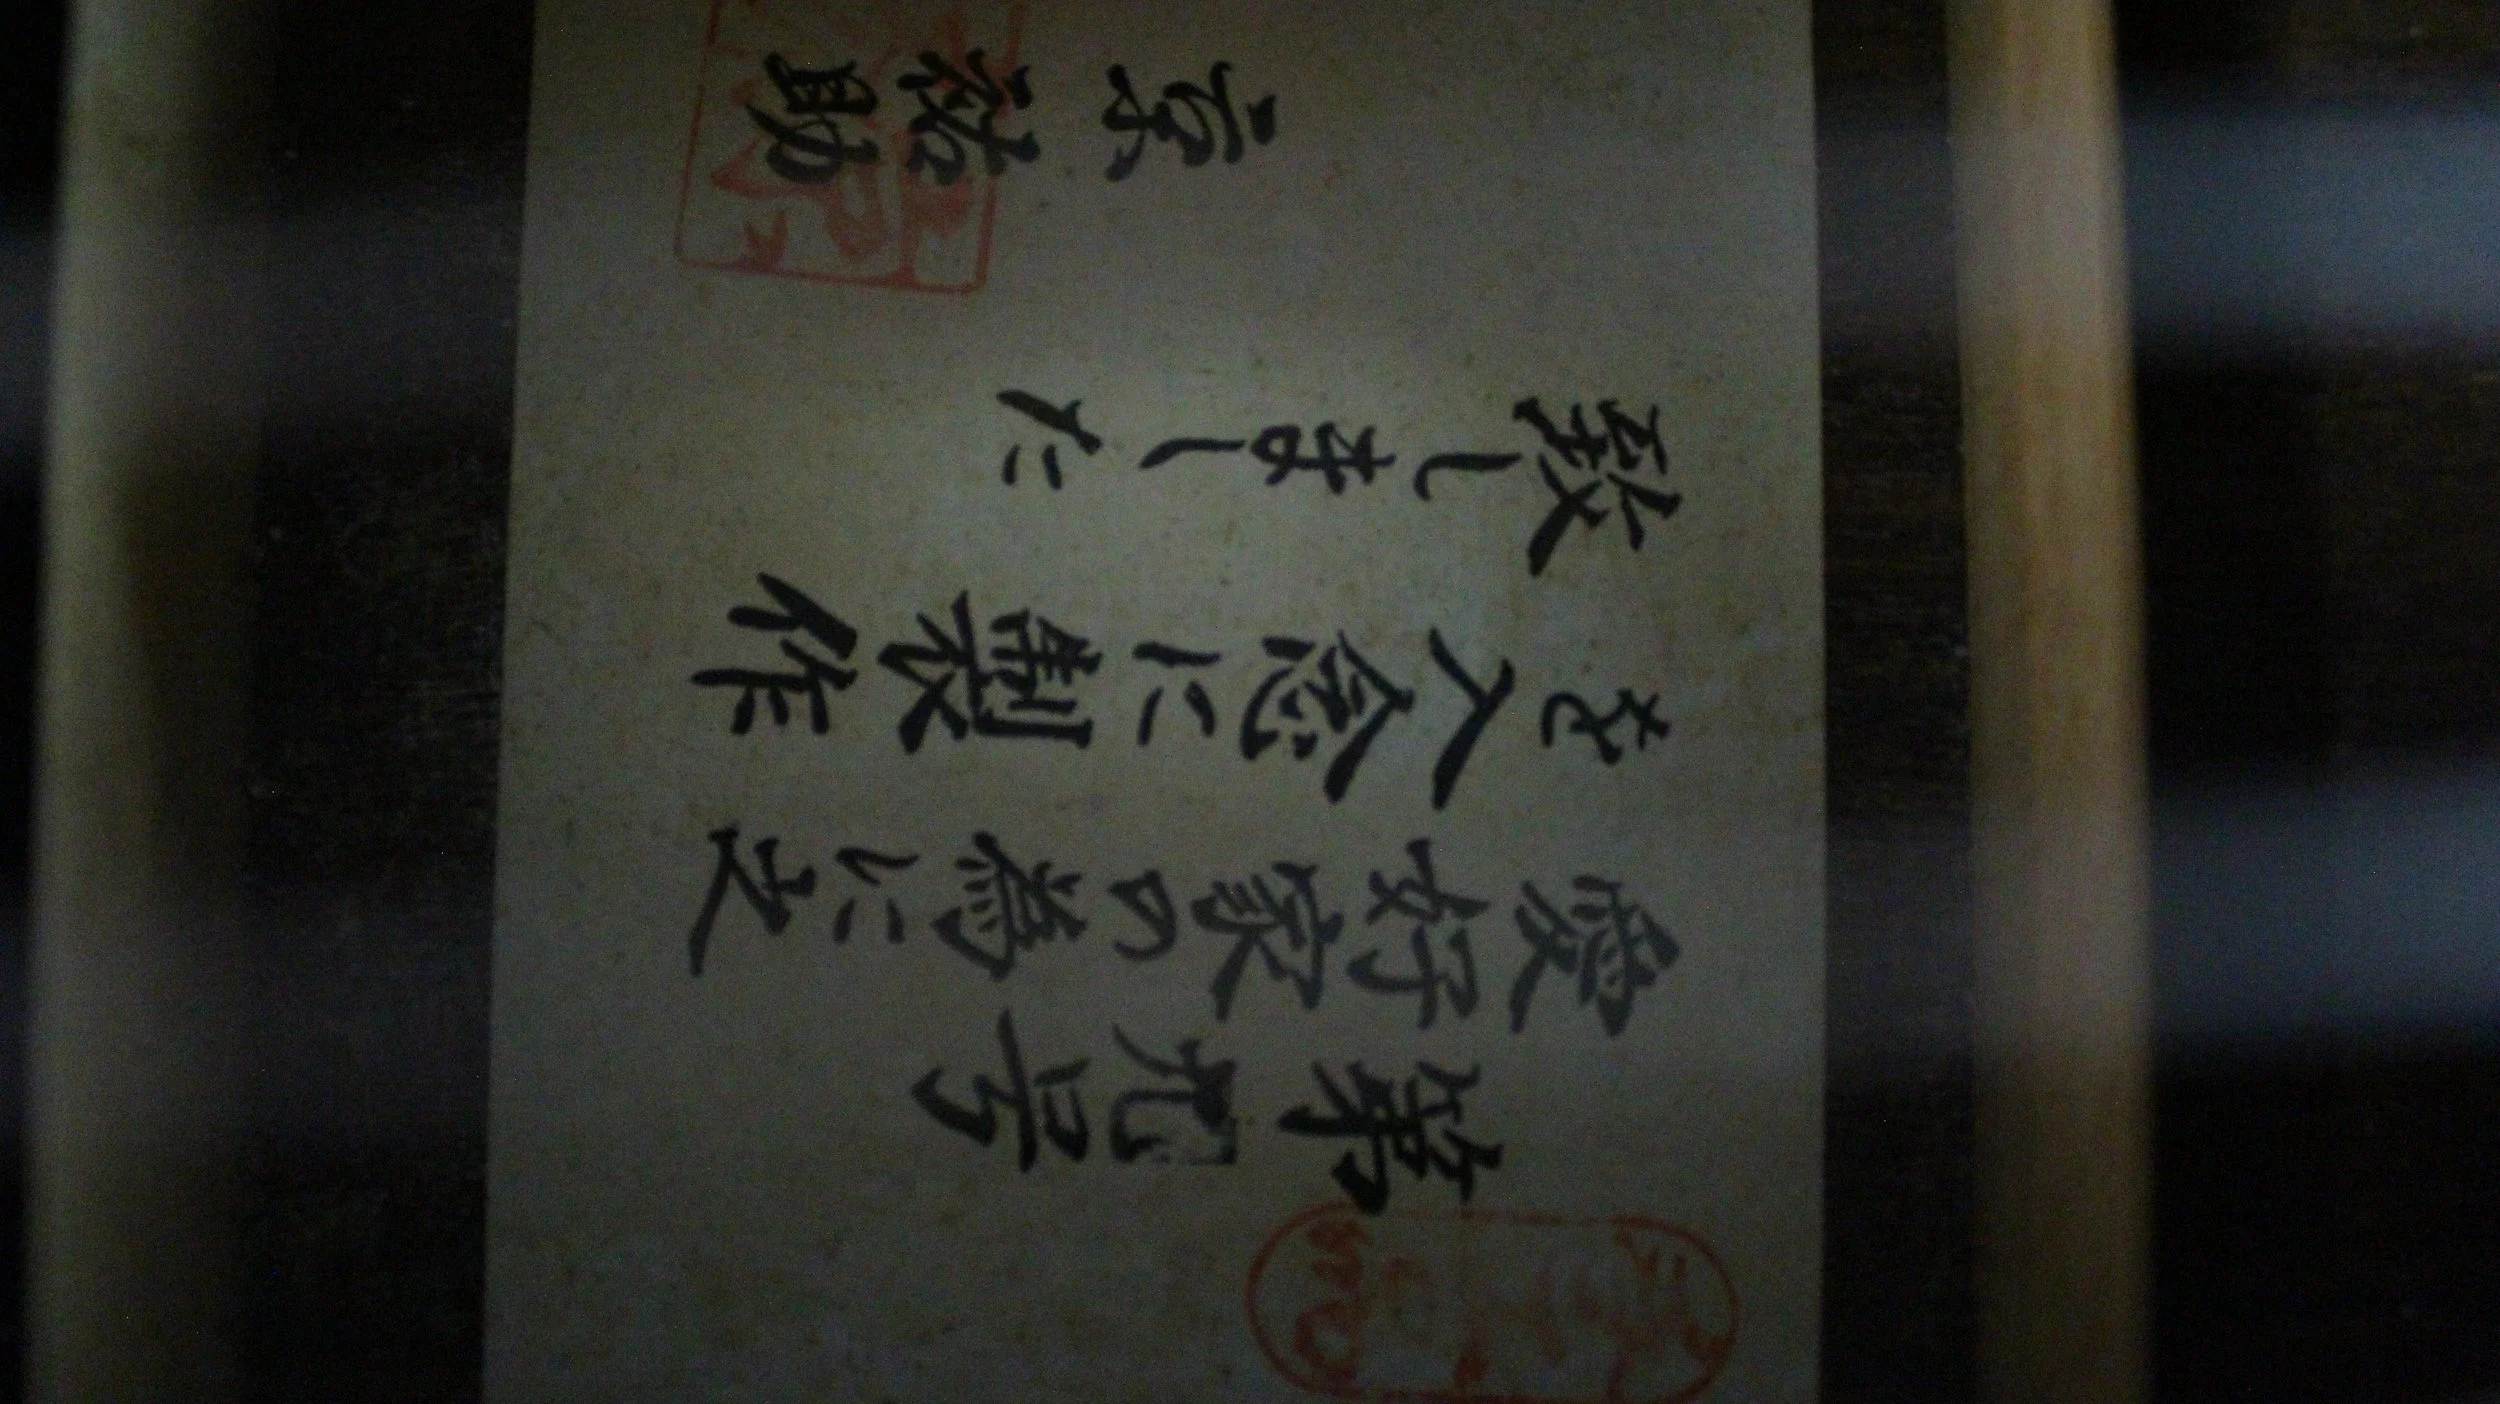 第九号
愛好家の為に之
を入念に製作
致しました
京 祐助